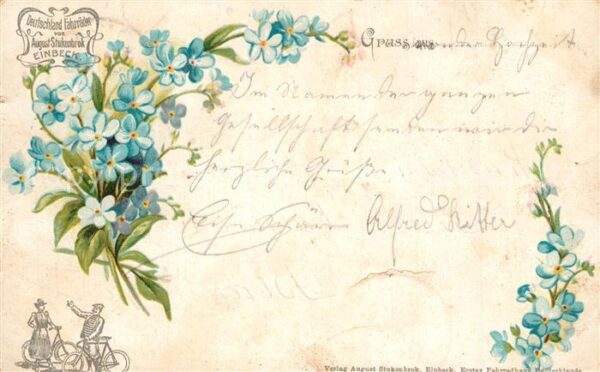 Deutschland Fahrräder
von
August Stukenbrok
EINBECK
Gruss aus von der Hochzeit
Im Namen der ganzen
Gesellschaft senden wir die
herzliche Grüße
Elise Alfred Ritter
Verlag August Stukenbrok, Einbeck. Erstes Fahrradhaus Deutschlands